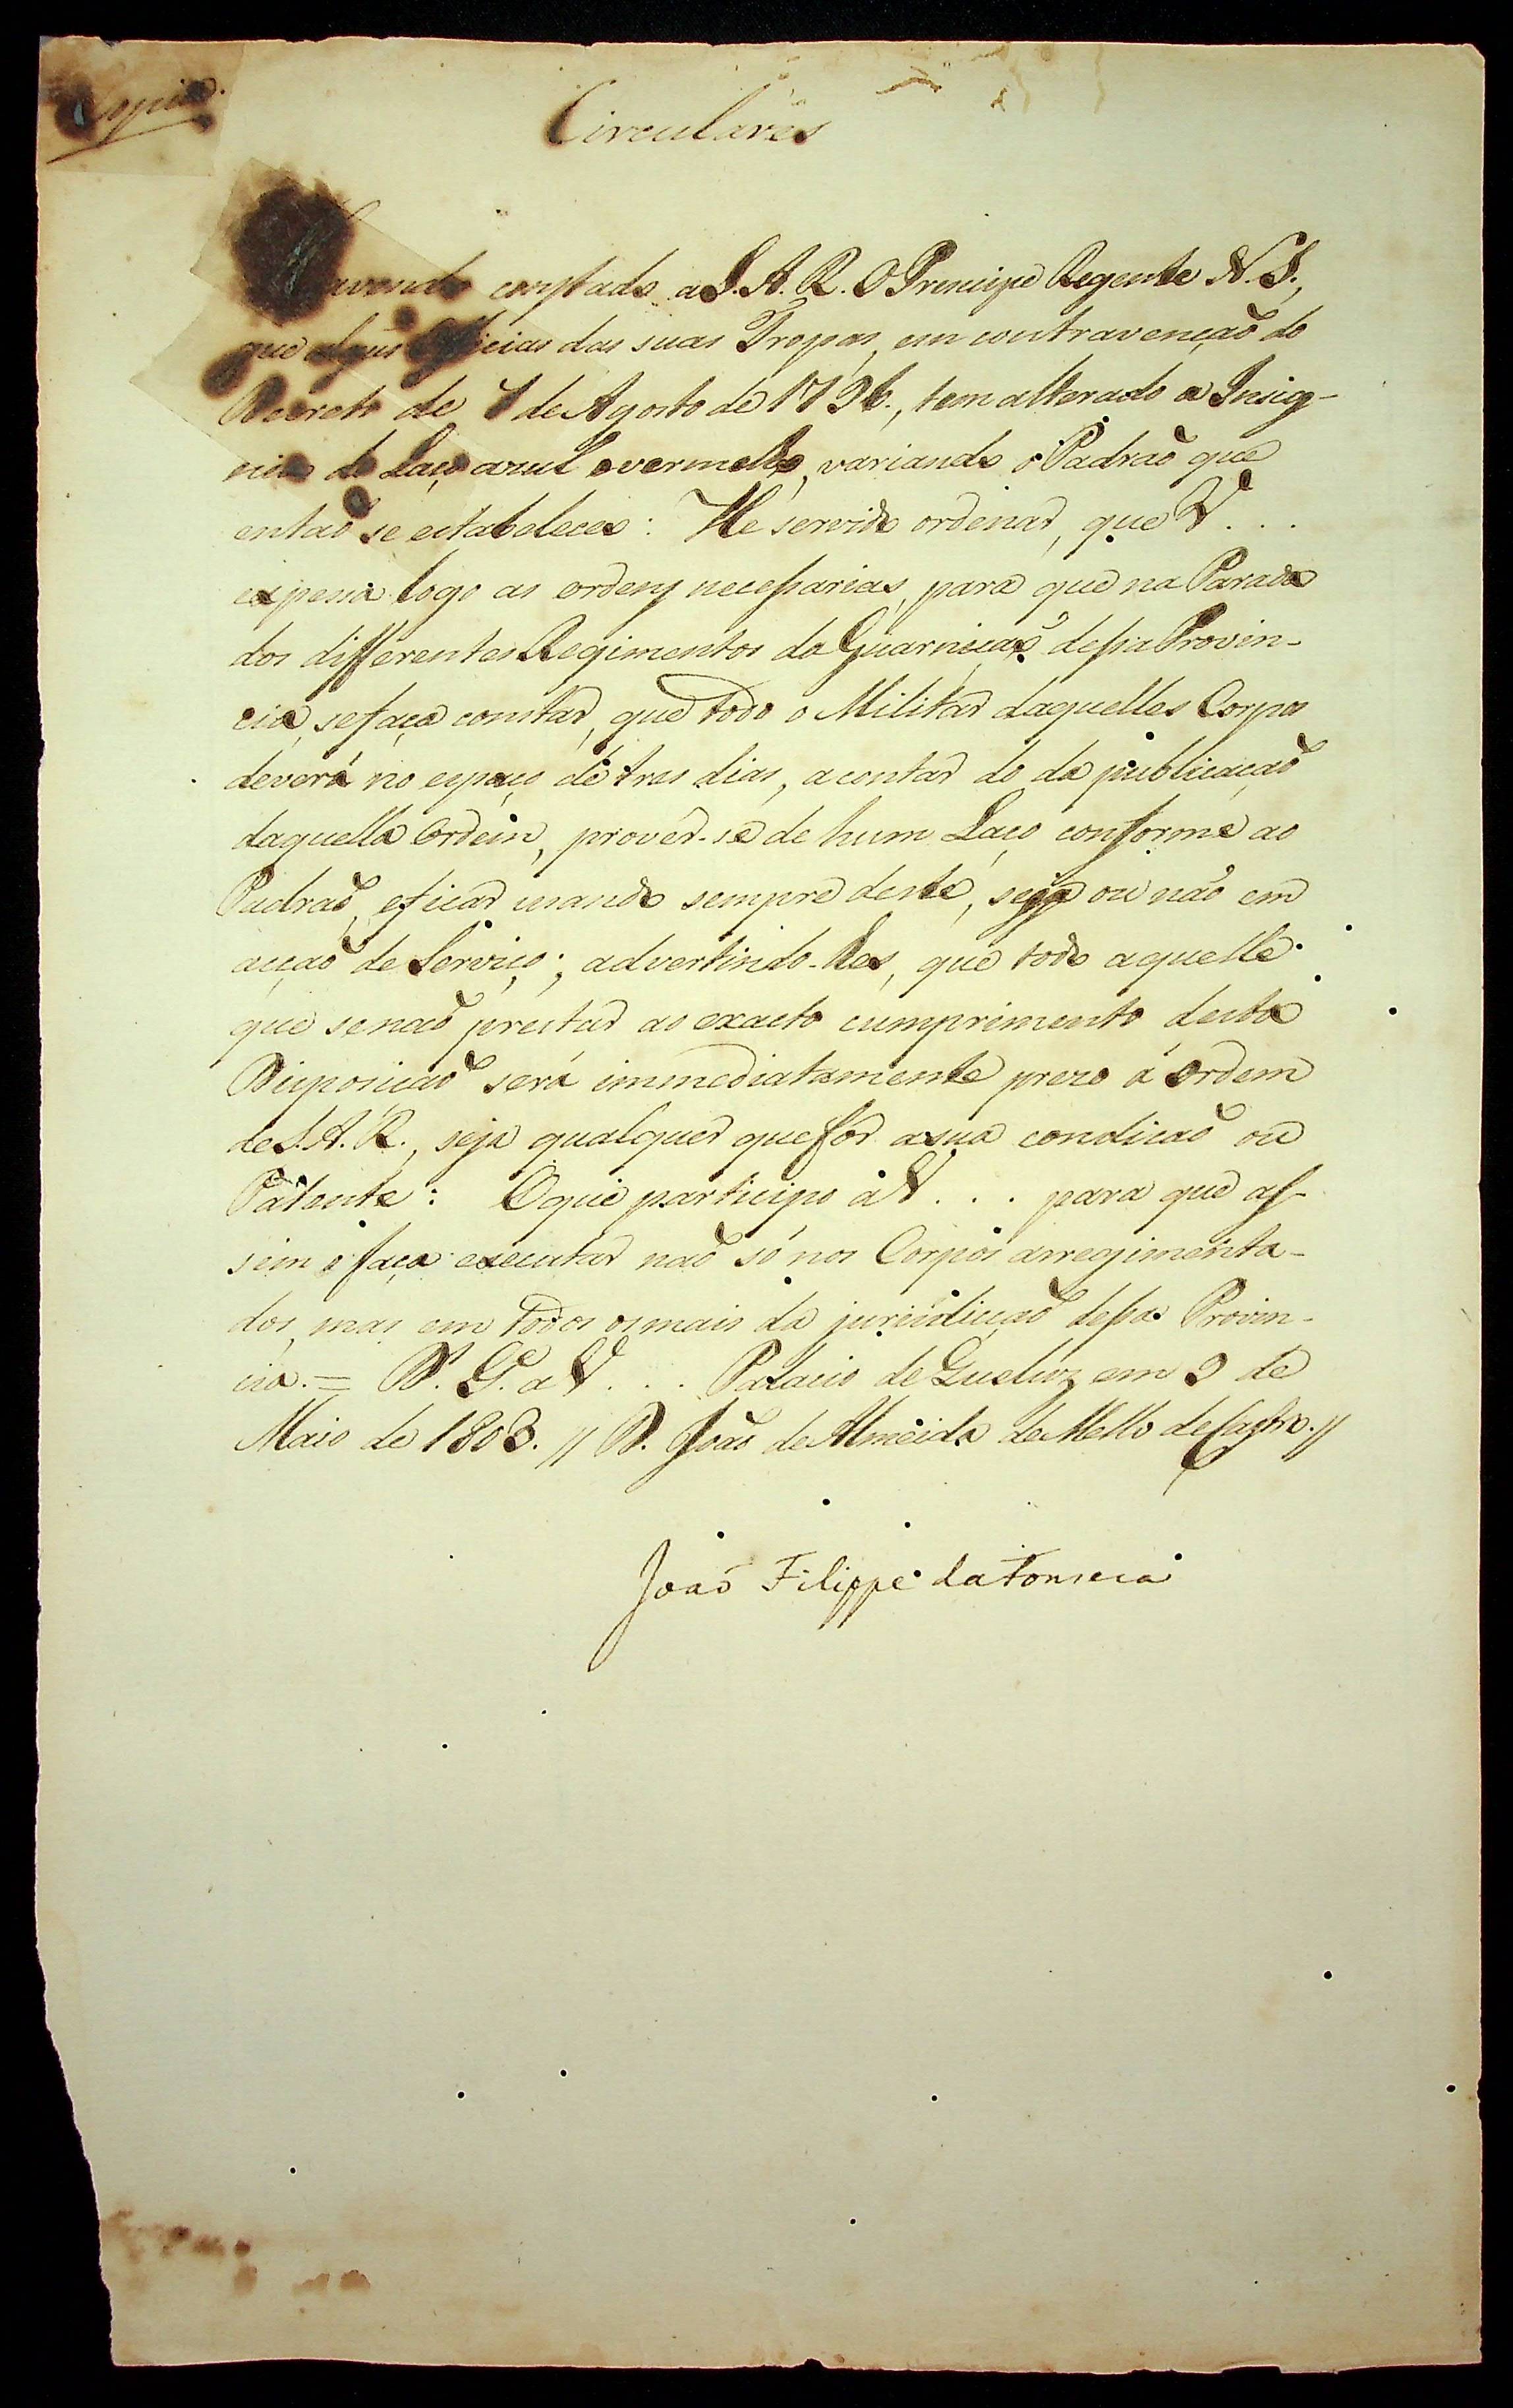 Copia.
Circulares
Havendo constado a S. A. R. O Prencipe Regente N. S.,
que alguns Officiaes das suas Tropas, em contravenção do
Decreto de 7 de Agosto de 1796., tem alterado a Insig-
nia do Laço azul e vermelho, variando o Padraõ que
entaõ se estabeleceo: He servido ordenar, que V. . .
expessa logo as ordens necessarias, para que na Parada
dos differentes Regimentos da Guarniçaõ dessa Provin-
cia, se faça constar, que todo o Militar daquelles Corpos
deverá no espaço de tres dias, a contar do da publicaçaõ
daquella Ordem, prover-se de hum Laço conforme ao
Padraõ, e ficar usando sempre deste, seja ou não em
acçaõ de Serviço; advertindo-lhes, que todo aquelle
que se naõ prestar ao exacto cumprimento desta
Disposiçaõ será immediatamente prezo á Ordem
de S. A. R., seja qualquer que fôr a sua condiçaõ ou
Patente: O que participo a V. . . para que as-
sim o faça executar naõ só nos Corpos arregimenta-
dos, mas em todos os mais da jurisdicçaõ dessa Provin-
cia. = D.s G.e a V. . . Palacio de Queluz em 9 de
Maio de 1803. // D. Joaõ de Almeida de Mello de Castro. //
Joaõ Filippe da Fonseca